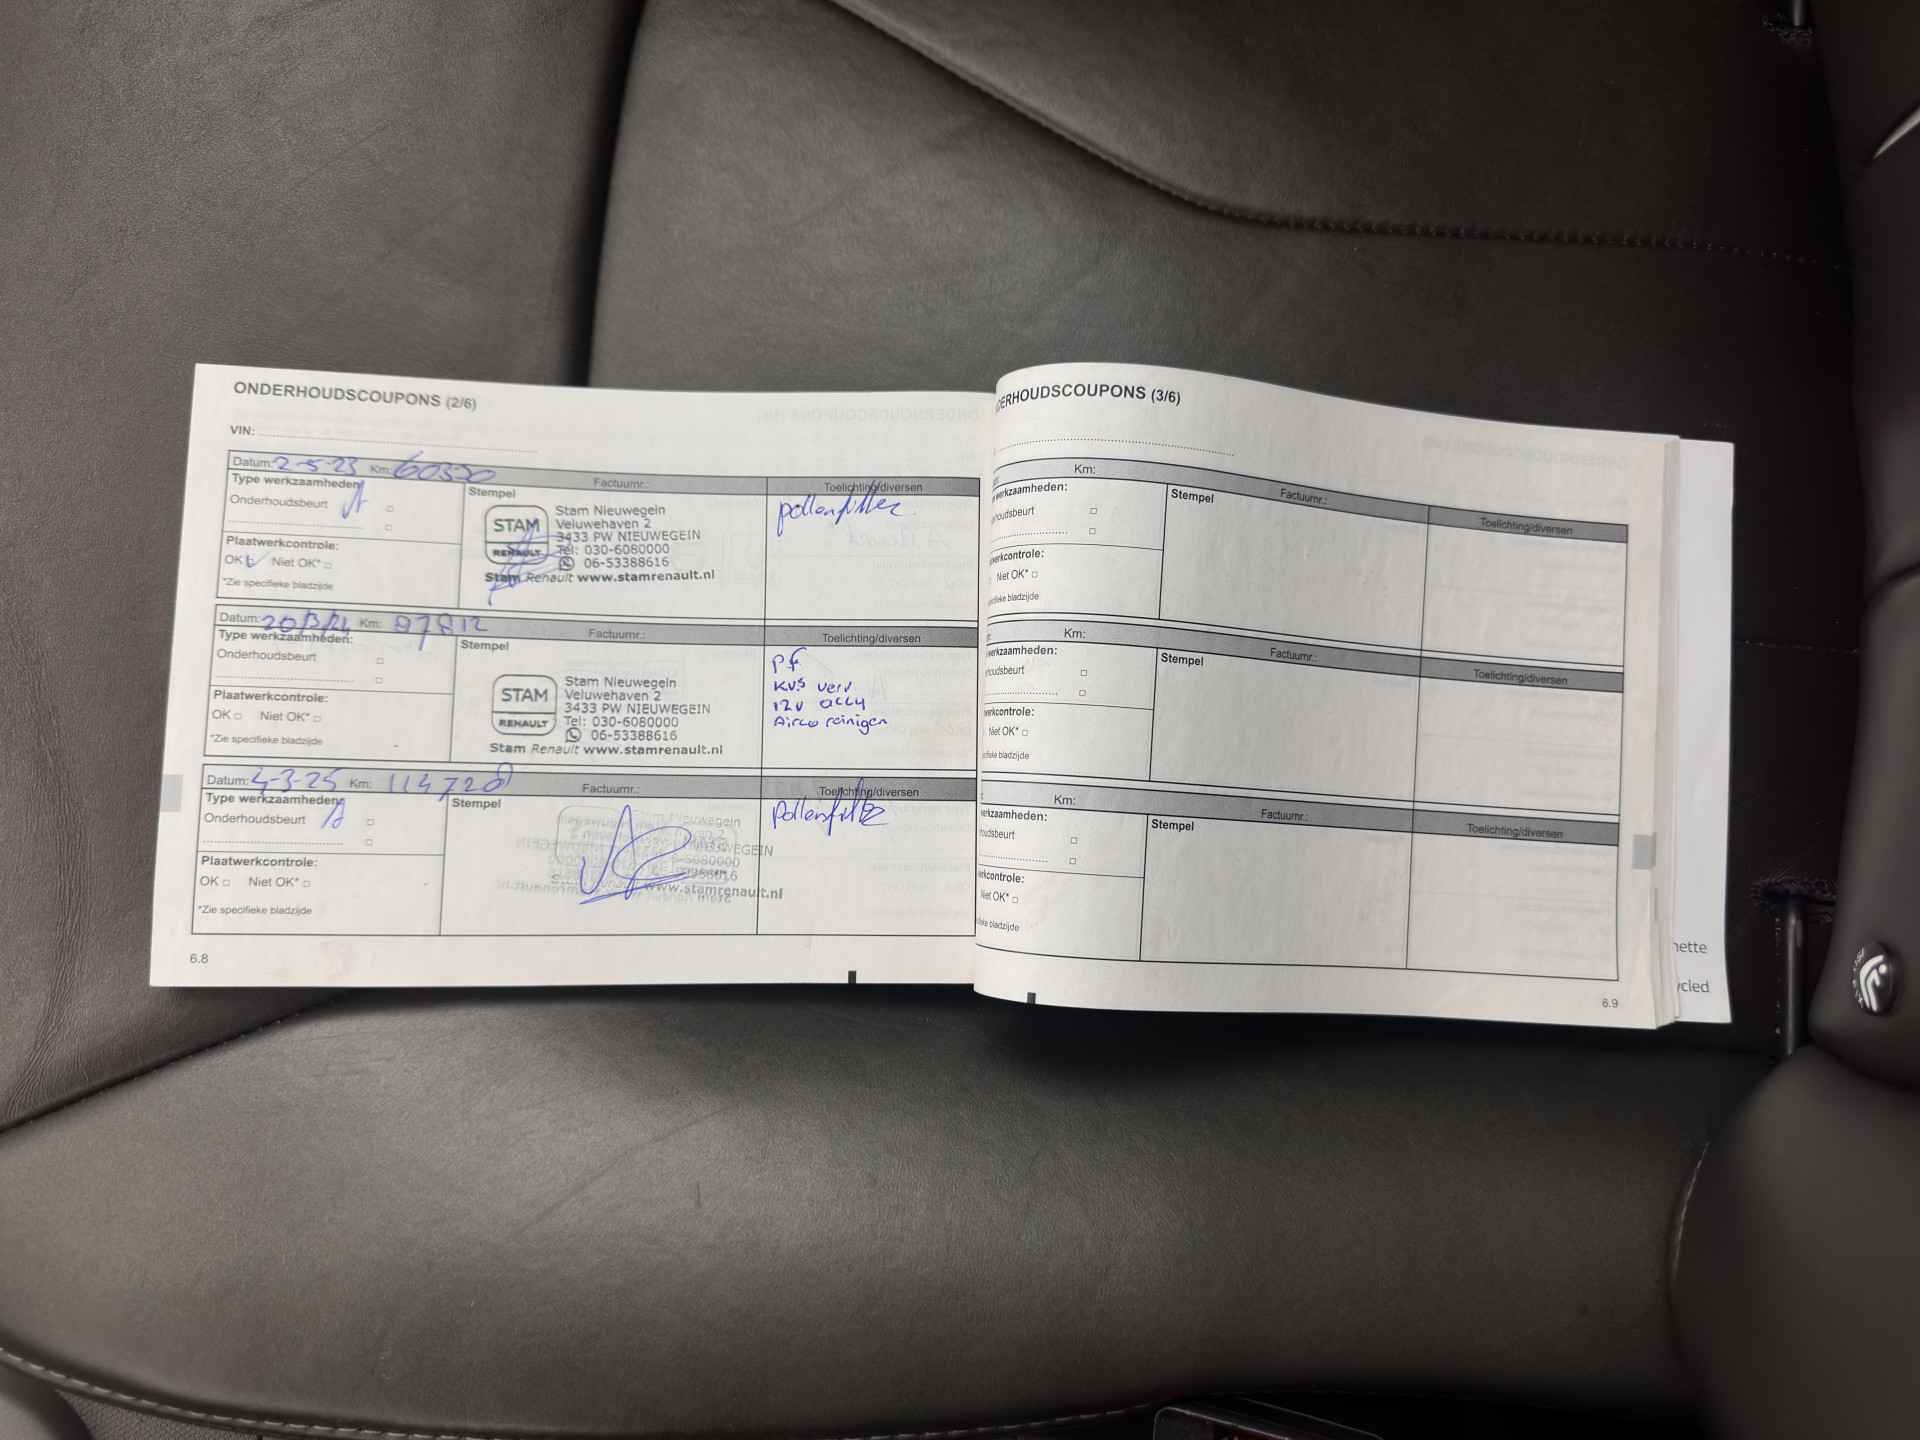 ONDERHOUDSCOUPONS (2/6)
VIN:
Datum: 2-5-23 Km: 60320 Factuurnr.:
Type werkzaamheden: A
Onderhoudsbeurt
Plaatwerkcontrole:
OK Niet OK*
*Zie specifieke bladzijde
Stempel
STAM
RENAULT
Stam Nieuwegein
Veluwehaven 2
3433 PW NIEUWEGEIN
Tel: 030-6080000
06-53388616
Stam Renault www.stamrenault.nl
Toelichting/diversen
pollenfilter
Datum: Km: 87812 Factuurnr.:
Type werkzaamheden:
Onderhoudsbeurt
Plaatwerkcontrole:
OK Niet OK*
*Zie specifieke bladzijde
Stempel
STAM
RENAULT
Stam Nieuwegein
Veluwehaven 2
3433 PW NIEUWEGEIN
Tel: 030-6080000
06-53388616
Stam Renault www.stamrenault.nl
Toelichting/diversen
P.F.
KVS verv
12v accu
Airco reinigen
Datum: 4-3-25 Km: 114720 Factuurnr.:
Type werkzaamheden: A
Onderhoudsbeurt
Plaatwerkcontrole:
OK Niet OK*
*Zie specifieke bladzijde
Stempel
Nieuwegein
www.stamrenault.nl
Toelichting/diversen
Pollenfilter
6.8
DERHOUDSCOUPONS (3/6)
Km: Factuurnr.:
werkzaamheden:
houdsbeurt
werkcontrole:
Niet OK*
specifieke bladzijde
Stempel
Toelichting/diversen
Km: Factuurnr.:
werkzaamheden:
houdsbeurt
werkcontrole:
Niet OK*
specifieke bladzijde
Stempel
Toelichting/diversen
Km: Factuurnr.:
werkzaamheden:
houdsbeurt
erkcontrole:
Niet OK*
fieke bladzijde
Stempel
Toelichting/diversen
6.9
nette
ycled